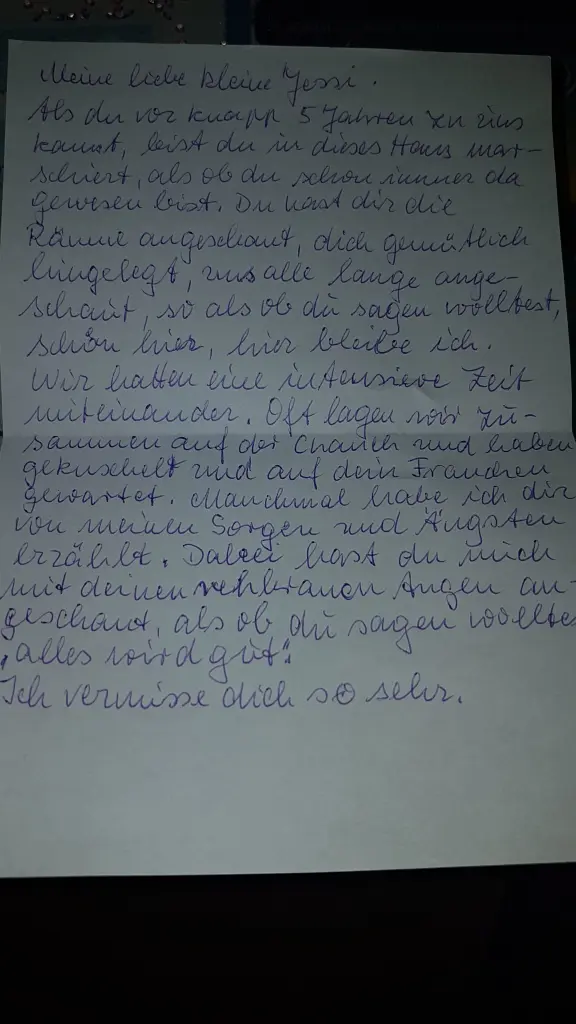 Meine liebe kleine Jessi.
Als du vor knapp 5 Jahren zu uns
kamst, bist du in dieses Haus mar-
schiert, als ob du schon immer da
gewesen bist. Du hast dir die
Räume angeschaut, dich gemütlich
hingelegt, uns alle lange ange-
schaut, so als ob du sagen wolltest,
schön hier, hier bleibe ich.
Wir hatten eine intensieve Zeit
miteinander. Oft lagen wir zu-
sammen auf der Chauch und haben
gekuschelt und auf dein Frauchen
gewartet. Manchmal habe ich dir
von meinen Sorgen und Ängsten
erzählt. Dabei hast du mich
mit deinen rehbraunen Augen an-
geschaut, als ob du sagen wolltes
"alles wird gut".
Ich vermisse dich so sehr.